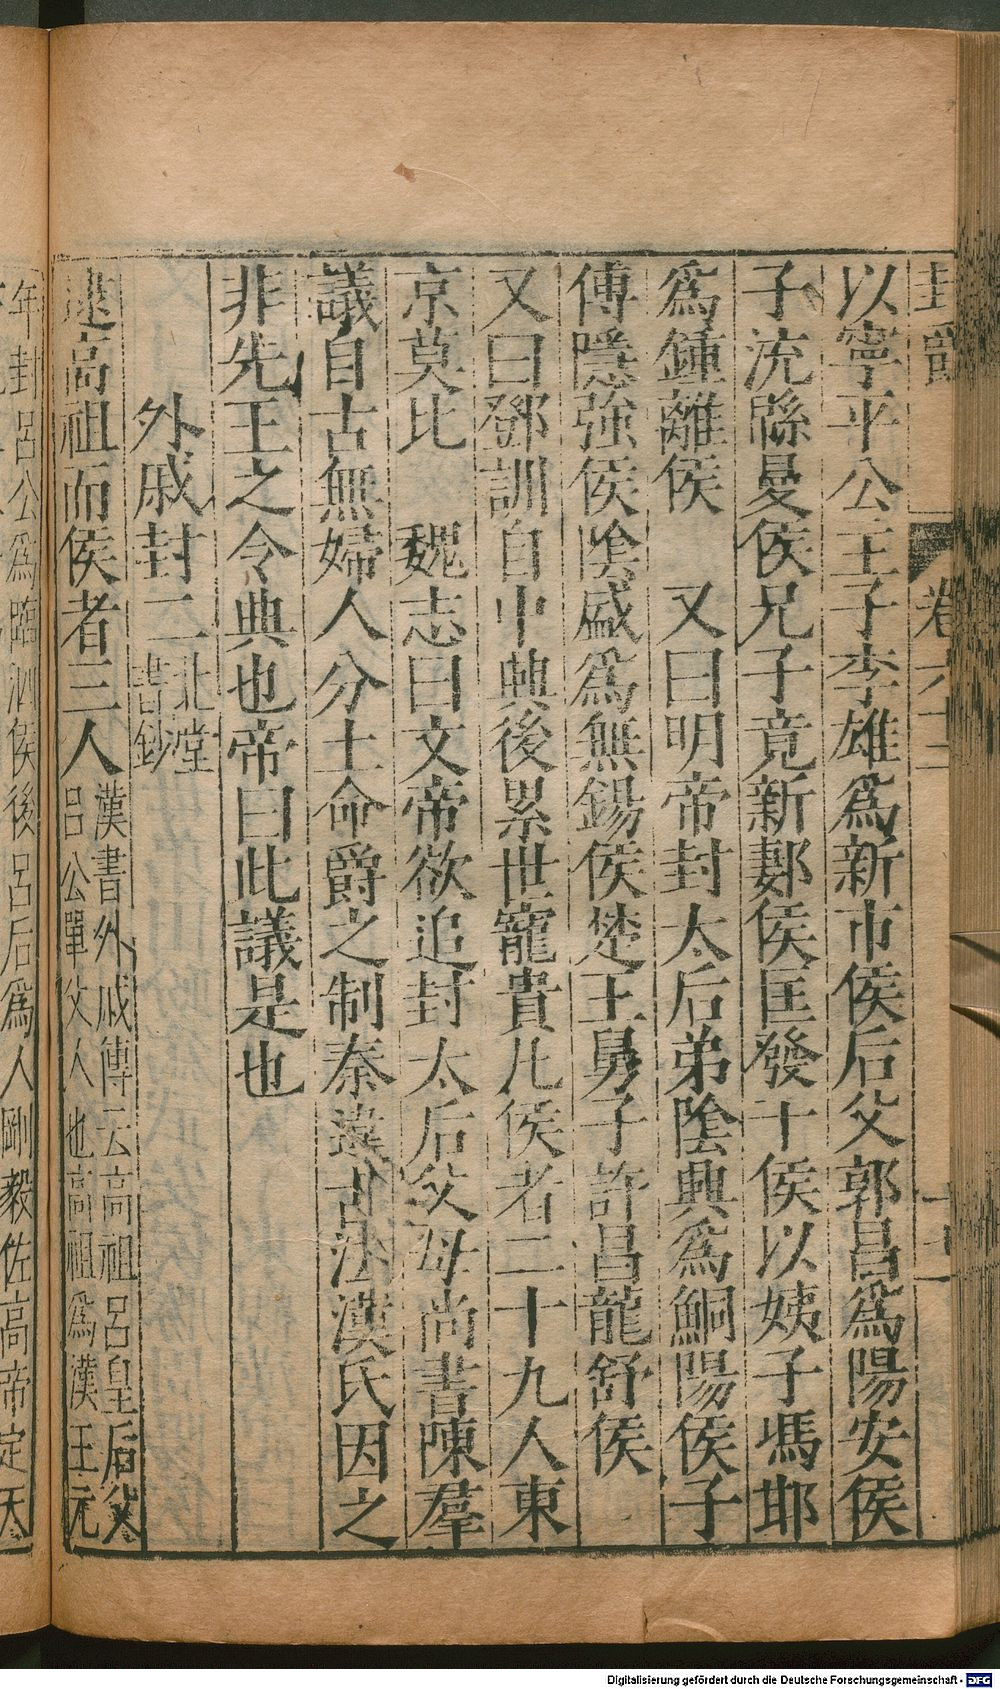 封爵 卷六十二 十七
以寧平公主子李雄爲新市侯后父郭昌爲陽安侯
子流緜曼侯兄子竟新鄭侯匡發干侯以姨子馮邯
爲鍾離侯 又曰明帝封太后弟陰興爲鮦陽侯子
傅隱強侯陰盛爲無錫侯楚王舅子許昌龍舒侯
又曰鄧訓自中興後累世寵貴凡侯者二十九人東
京莫比 魏志曰文帝欲追封太后父母尚書陳羣
議自古無婦人分土命爵之制秦違古法漢氏因之
非先王之令典也帝曰此議是也
外戚封二北堂
書鈔
逮高祖而侯者三人漢書外戚傳云高祖呂皇后父
呂公單父人也高祖爲漢王元
年封呂公爲臨泗侯後呂后爲人剛毅佐高帝定天
Digitalisierung gefördert durch die Deutsche Forschungsgemeinschaft - DFG